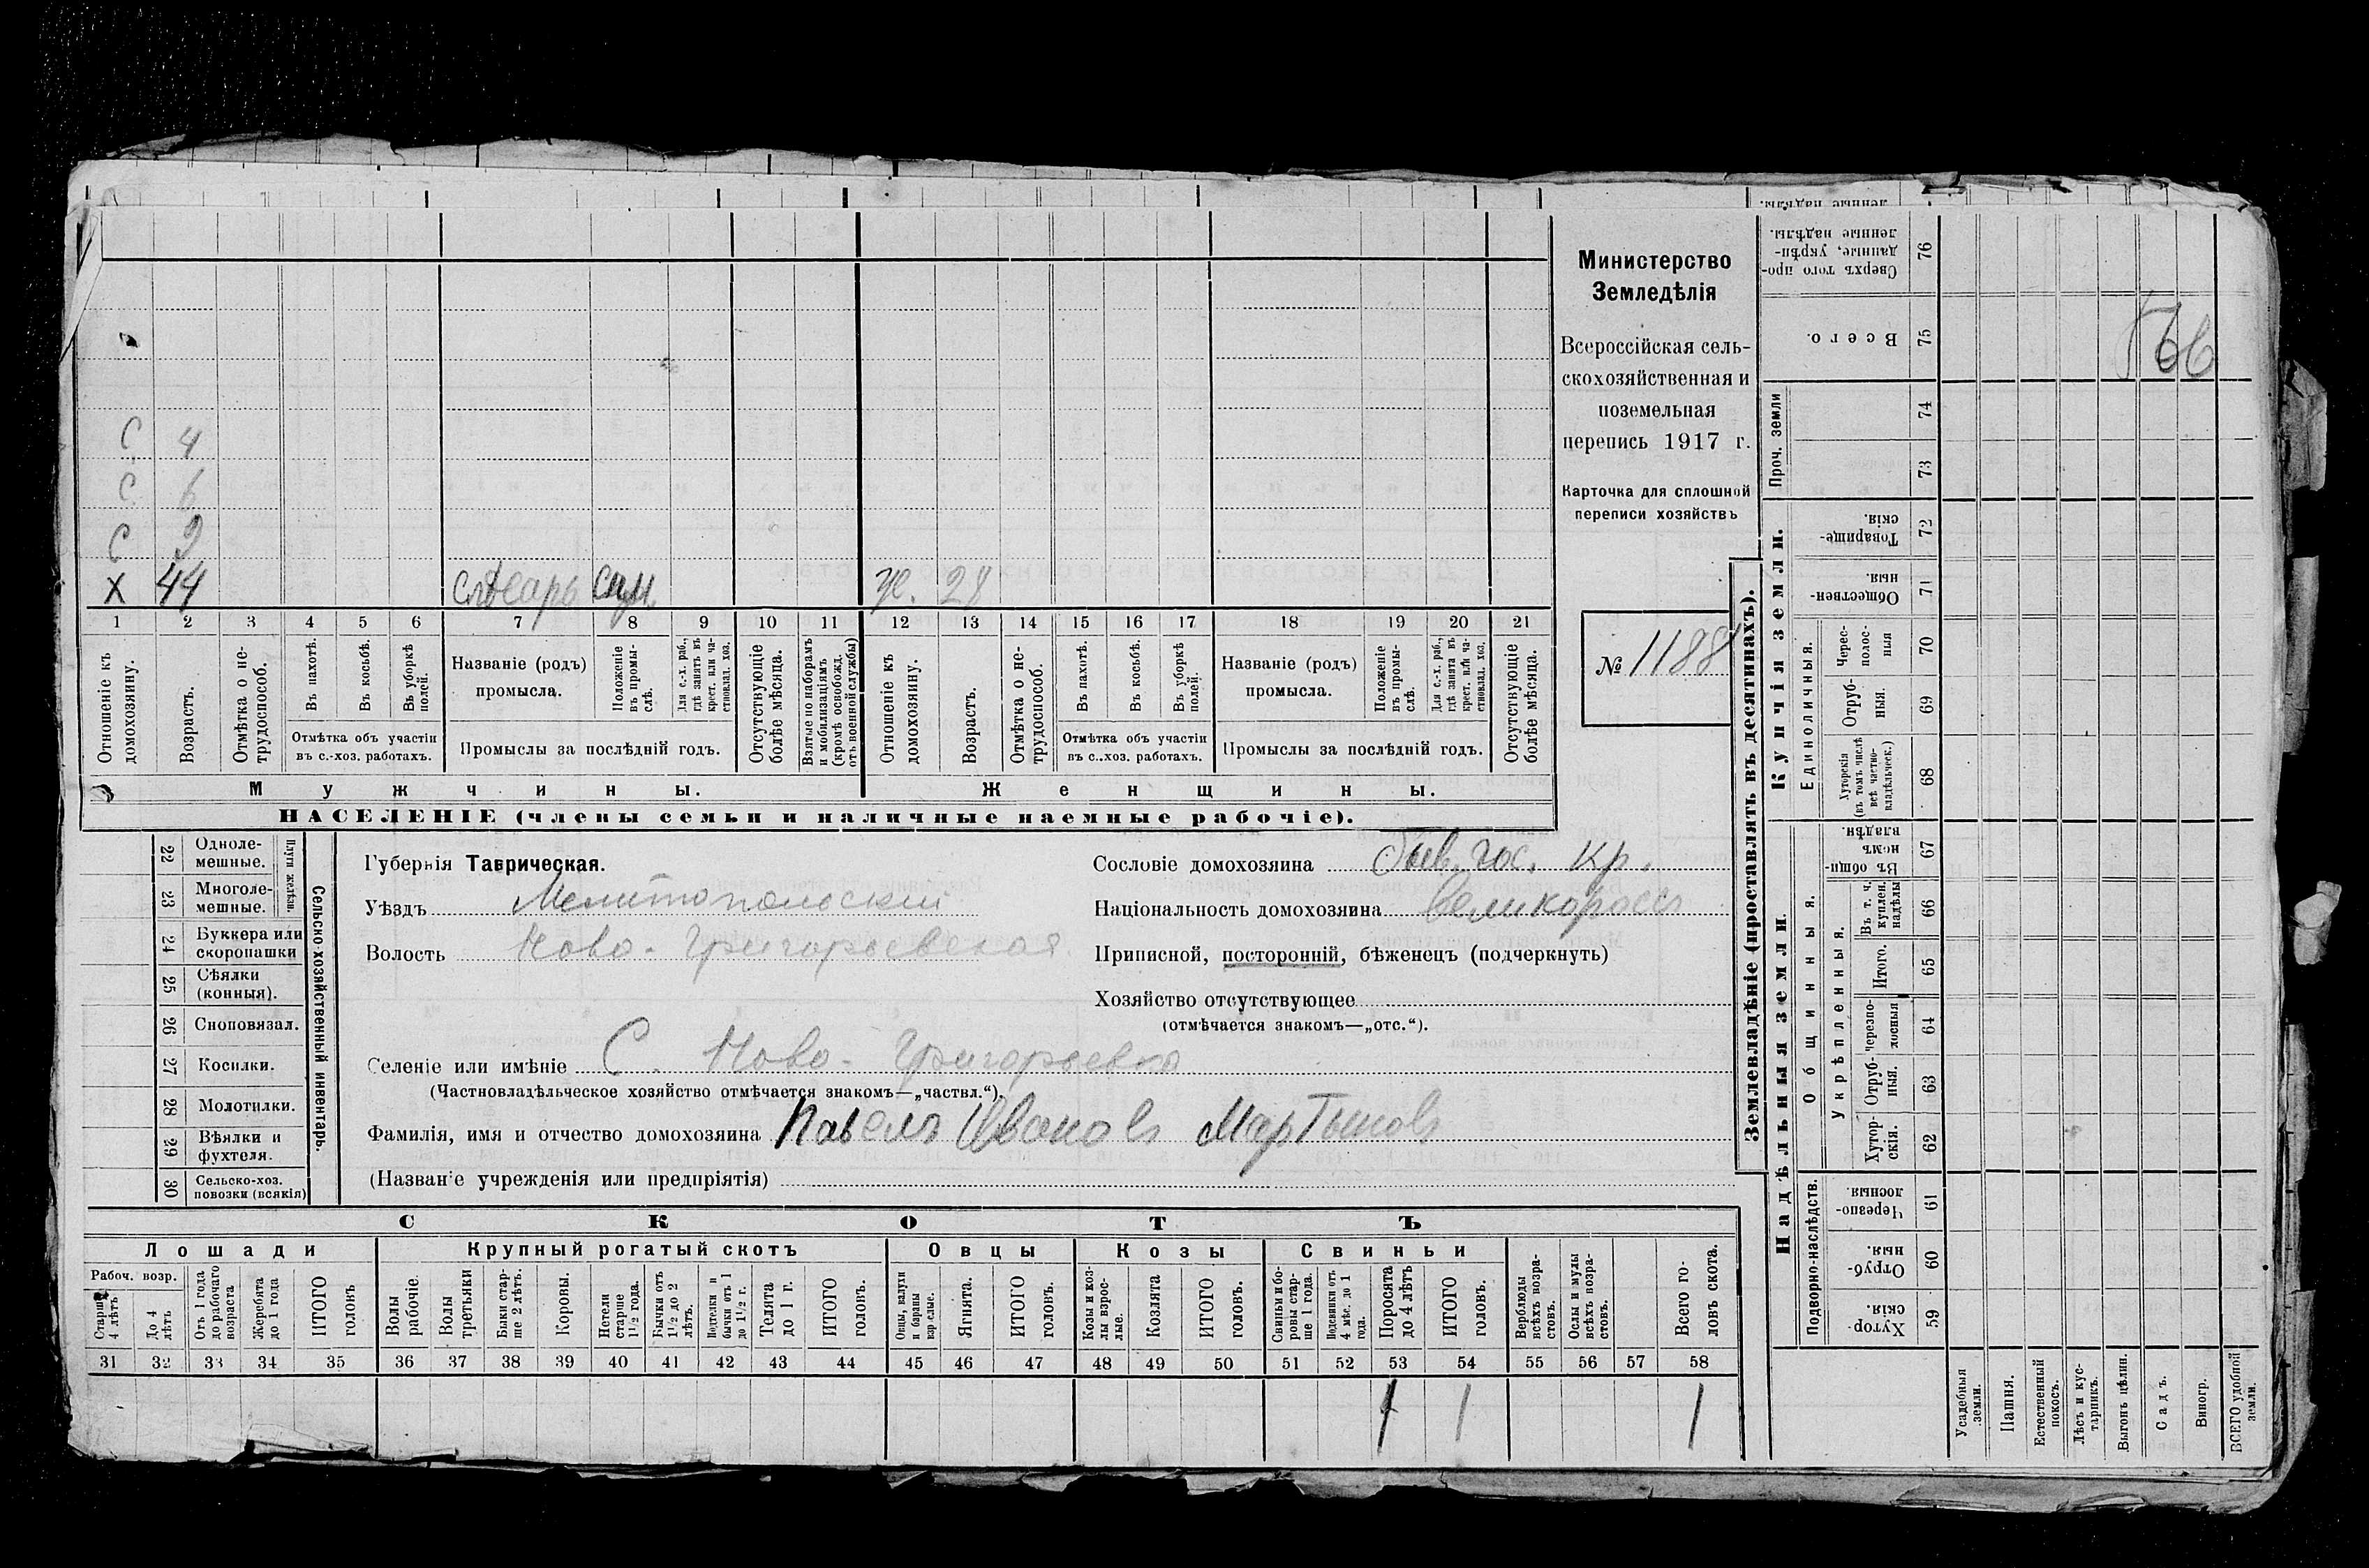 С 4
С 6
С 9
Х 44 слѣсарь сам. ж. 28
1 2 3 4 5 6 7 8 9 10 11 12 13 14 15 16 17 18 19 20 21
Отношеніе къ домохозяину.
Возрастъ.
Отмѣтка о не-
трудоспособ.
Въ пахотѣ.
Въ косьбѣ.
Въ уборкѣ
полей.
Отмѣтка объ участіи
въ с.-хоз. работахъ.
Названіе (родъ)
промысла.
Положеніе
въ промы-
слѣ.
Для с.-х. раб.,
гдѣ занятъ въ
крест. или ча-
стновлад. хоз.
Промыслы за послѣдній годъ.
Отсутствующіе
болѣе мѣсяца.
Взятые по наборамъ
и мобилизаціямъ
(кромѣ освобожд.
отъ военной службы)
Отношеніе къ
домохозяину.
Возрастъ.
Отмѣтка о не-
трудоспособ.
Въ пахотѣ.
Въ косьбѣ.
Въ уборкѣ
полей.
Отмѣтка объ участіи
въ с.-хоз. работахъ.
Названіе (родъ)
промысла.
Положеніе
въ промы-
слѣ.
Для с.-х. раб.,
гдѣ занята въ
крест. или ча-
стновлад. хоз.
Промыслы за послѣдній годъ.
Отсутствующіе
болѣе мѣсяца.
Мужчины.
Женщины.
НАСЕЛЕНІЕ (члены семьи и наличные наемные рабочіе).
Министерство
Земледѣлія
Всероссійская сель-
скохозяйственная и
поземельная
перепись 1917 г.
Карточка для сплошной
переписи хозяйствъ
№ 1188
22 Одноле-
мешные.
23 Многоле-
мешные.
Плуги желѣзн.
24 Буккера или
скоропашки
25 Сѣялки
(конныя).
26 Сноповязал.
27 Косилки.
28 Молотилки.
29 Вѣялки и
фухтеля.
30 Сельско-хоз.
повозки (всякія)
Сельско-хозяйственный инвентарь.
Губернія Таврическая.
Уѣздъ Мелитопольскій
Волость Ново-Григорьевская
Сословіе домохозяина быв. гос. кр.
Національность домохозяина великороссъ
Приписной, посторонній, бѣженецъ (подчеркнуть)
Хозяйство отсутствующее
(отмѣчается знакомъ—„отс.“).
Селеніе или имѣніе С. Ново-Григорьевка
(Частновладѣльческое хозяйство отмѣчается знакомъ—„частвл.“).
Фамилія, имя и отчество домохозяина Павелъ Ивановъ Мартыновъ
(Названіе учрежденія или предпріятія)
СКОТЪ
Лошади
Крупный рогатый скотъ
Овцы
Козы
Свиньи
Рабоч. возр.
Старше
4 лѣтъ
До 4
лѣтъ
Отъ 1 года
до рабочаго
возраста
Жеребята
до 1 года
ИТОГО
головъ
Волы
рабочіе.
Волы
третьяки
Быки стар-
ше 2 лѣтъ.
Коровы.
Нетели
старше
1½ года.
Бычки отъ
1½ до 2
лѣтъ.
Подтелки и
бычки отъ 1
до 1½ г.
Телята
до 1 г.
ИТОГО
головъ.
Овцы, валухи
и бараны
взрослые.
Ягнята.
ИТОГО
головъ.
Козы и коз-
лы взрос-
лые.
Козлята
ИТОГО
головъ.
Свиньи и бо-
ровы стар-
ше 1 года.
Подсвинки отъ
4 мѣс. до 1
года.
Поросята
до 4 лѣтъ
ИТОГО
головъ.
Верблюды
всѣхъ возра-
стовъ.
Ослы и мулы
всѣхъ возра-
стовъ.
Всего го-
ловъ скота.
31 32 33 34 35 36 37 38 39 40 41 42 43 44 45 46 47 48 49 50 51 52 53 54 55 56 57 58
1 1 1
Землевладѣніе (проставлять въ десятинахъ).
Купчія земли.
Надѣльныя земли.
Сверхъ того про-
данные, укрѣп-
ленные надѣлы.
76
Всего.
75
Проч. земли
74
73
Товарище-
скія.
72
Обществен-
ныя.
71
Единоличныя.
Черес-
полос-
ныя
70
Отруб-
ныя.
69
Хуторскія
(въ томъ числѣ
всѣ частно-
владѣльческ.)
68
Общинныя.
Въ общи
номъ
владѣн.
67
Укрѣпленныя.
Въ т. ч.
куплен.
надѣлы
66
Итого.
65
Черезпо-
лосныя
64
Отруб-
ныя.
63
Хутор-
скія.
62
Подворно-наслѣдств.
Черезпо-
лосныя.
61
Отруб-
ныя.
60
Хутор-
скія.
59
Усадебныя
земли.
Пашня.
Естественный
покосъ.
Лѣсъ и кус-
тарникъ.
Выгонъ цѣлин.
Садъ.
Виногр.
ВСЕГО удобной
земли.